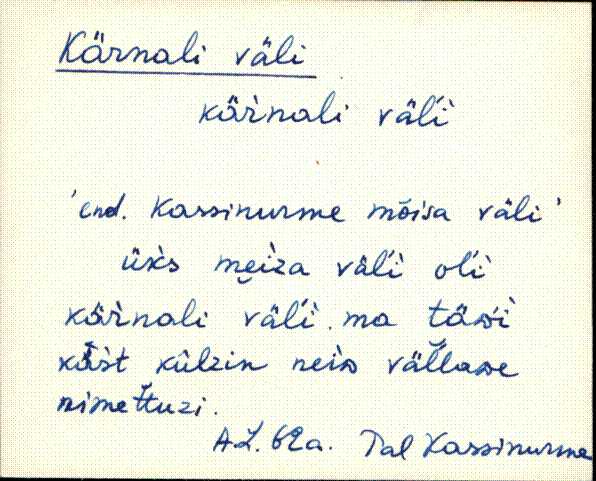 Kärnali väli
kärnali väl'i
'end. Kassinurme mõisa väli'
üks meiza väl'i ol'i
kärnali väl'i. ma täẅi
käst külzin neiw väl'l'awe
nimettuzi.
A.L. 62a. Pal Kassinurme